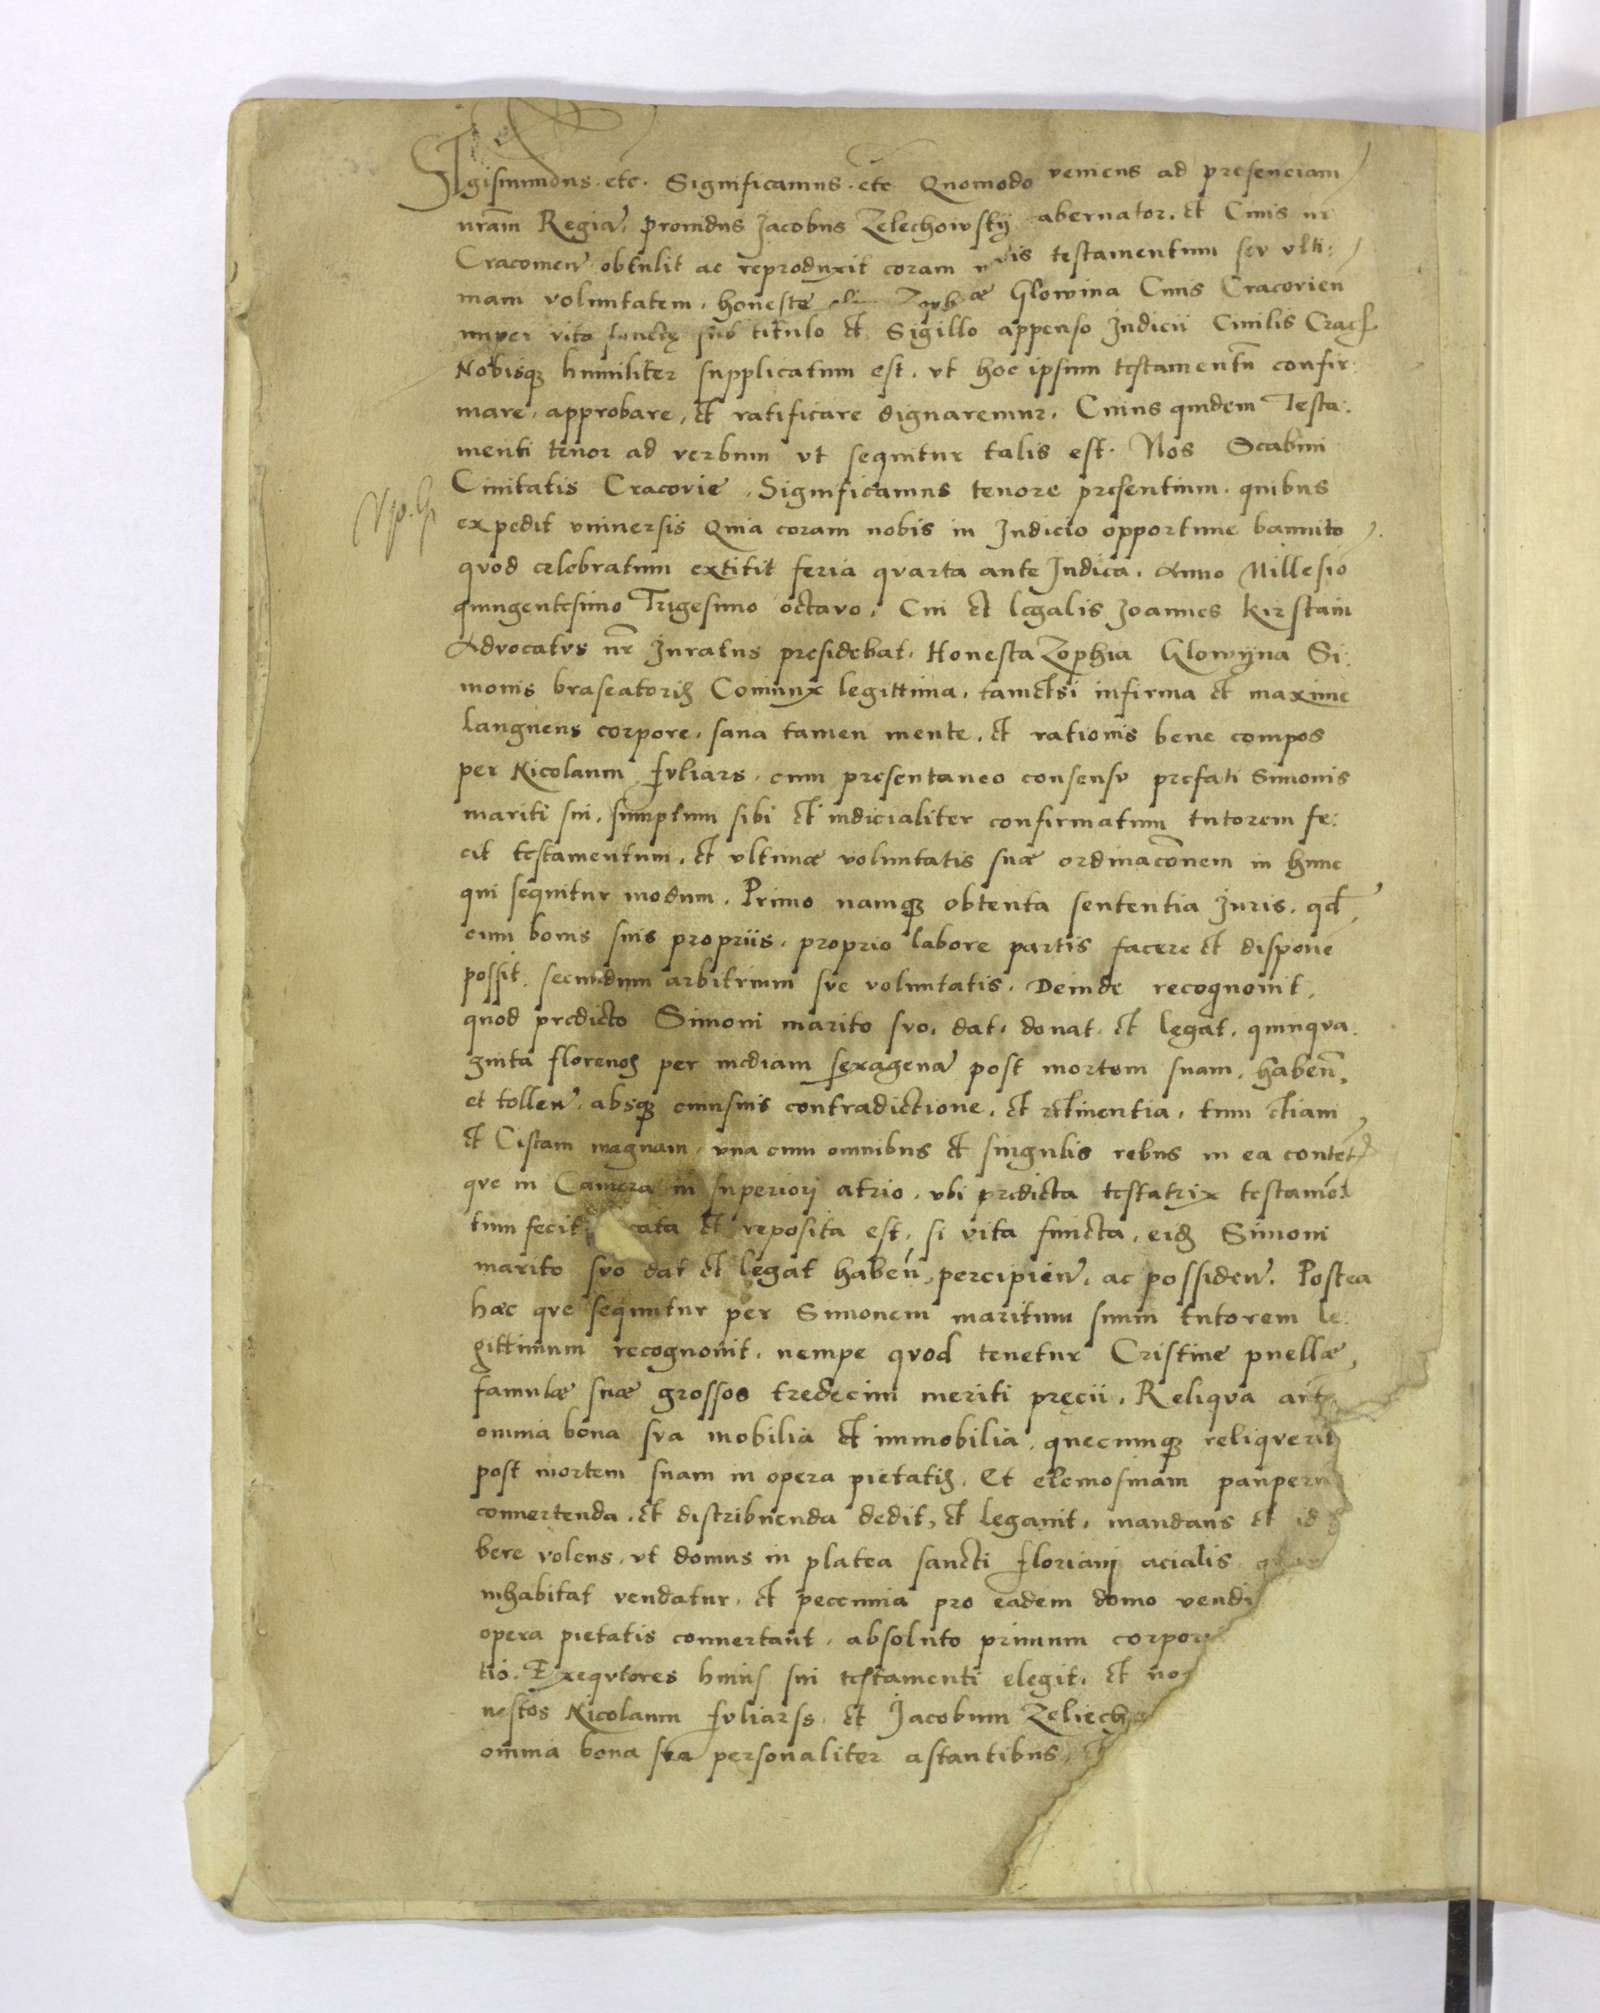 Sigismundus. etc. Significamus. etc Quomodo veniens ad presenciam
nram Regia. providus Jacobus Zelechowskij tabernator. et Civis nr
Cracovien obtulit ac reproduxit coram testamentum seu ulti:
mam voluntatem. honeste olim Glowina Civis Cracovien
nuper vita functę sub titulo et Sigillo appenso Judicii Civilis Crac
Nobisq humiliter supplicatum est. ut hoc ipsum testamentu confir:
mare. approbare, et ratificare dignaremur. Cuius quidem Testa:
menti tenor ad verbum ut sequitur talis est. Nos Scabini
Civitatis Cracovie. Significamus tenore presentium. quibus
expedit universis Quia coram nobis in Judicio opportune bannito
quod celebratum extitit feria quarta ante Judica. Anno Millesio
quingentesimo Trigesimo octavo. Cui et legalis Joannes Kirstain
Advocatus nr Juratus presidebat. Honesta Zophia Glowijna Si:
monis braseatoris Coniunx legittima. tametsi infirma et maxime
languens corpore. sana tamen mente. et rationis bene compos
per Nicolaum fuliars. cum presentaneo consensu prefati Simonis
mariti sui. sumptum sibi et iudicialiter confirmatum tutorem fe:
cit testamentum. et ultimæ voluntatis suæ ordinaconem in hunc
qui sequitur modum. Primo namq obtenta sententia Juris. qd
cum bonis suis propriis. proprio labore partis facere et dispone
possit. secundum arbitrium sue voluntatis. Deinde recognovit.
quod predicto Simoni marito suo. dat. donat. et legat. quinqua.
ginta florenos per mediam sexagena post mortem suam. haben.
et tollen. absq cuiusvis contradictione. et retinentia. tum etiam
et Cistam magnam. una cum omnibus et singulis rebus in ea content
que in Camera in superiorj atrio. ubi predicta testatrix testamen
tum fecit et reposita est. si vita functa. eid Simoni
marito suo dat et legat haben. percipien. ac possiden. Postea
hæc que sequuntur per Simonem maritum suum tutorem le:
gittimum recognovit. nempe quod tenetur Cristine puellæ.
famulæ suæ grossos tredecim meriti pręcii. Reliqua aut
omnia bona sua mobilia et immobilia. quecumq reliquerit
post mortem suam in opera pietatis. Et elemosinam pauperu
convertenda. et distribuenda dedit, et legavit. mandans et id
bere volens. ut domus in platea sancti floriani acialis
inhabitat vendatur. et pecunia pro eadem domo vendi
opera pietatis convertant. absoluto primum corpor
tio. Exequtores huius sui testamenti elegit. et no
nestos Nicolaum fuliarss. et Jacobum Zeliech
omnia bona sua personaliter astantibus.